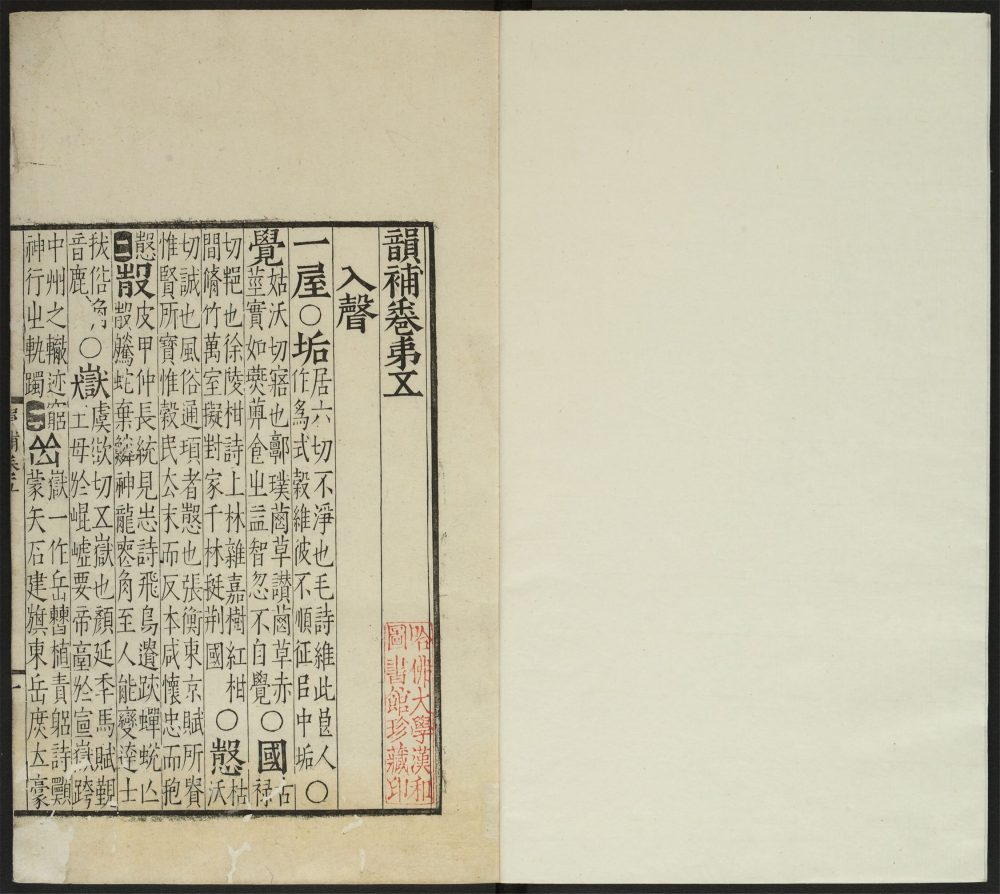 韻補卷弟五
入聲
一屋○垢居六切不淨也毛詩維此良人
作為式穀維彼不順征㠯中垢○
覺姑沃切寤也郭璞茵草讚茵草赤
莖實如薁萆食之益智忽不自覺○國古
祿
切也徐陵柑詩上林雜嘉樹紅柑
間脩竹萬室擬對家千林挺荆國○慤枯
沃
切誠也風俗通項者慤也張衡東京賦所貴
惟賢所寶惟穀民去末而反本咸懷忠而抱
慤
二㱿皮甲仲長統見志詩飛鳥遺跡蟬蛻亾
㱿騰蛇棄鱗神龍喪角至人能變達士
拔俗角
音鹿○嶽虞欲切五嶽也顏延年馬賦覲
王母於崐墟要帝臺於宣嶽跨
中州之轍迹窮
神行之軌躅二嶽一作岳曹植責躬詩願
蒙矢石建旗東岳庶立豪
哈佛大學漢和
圖書館珍藏印